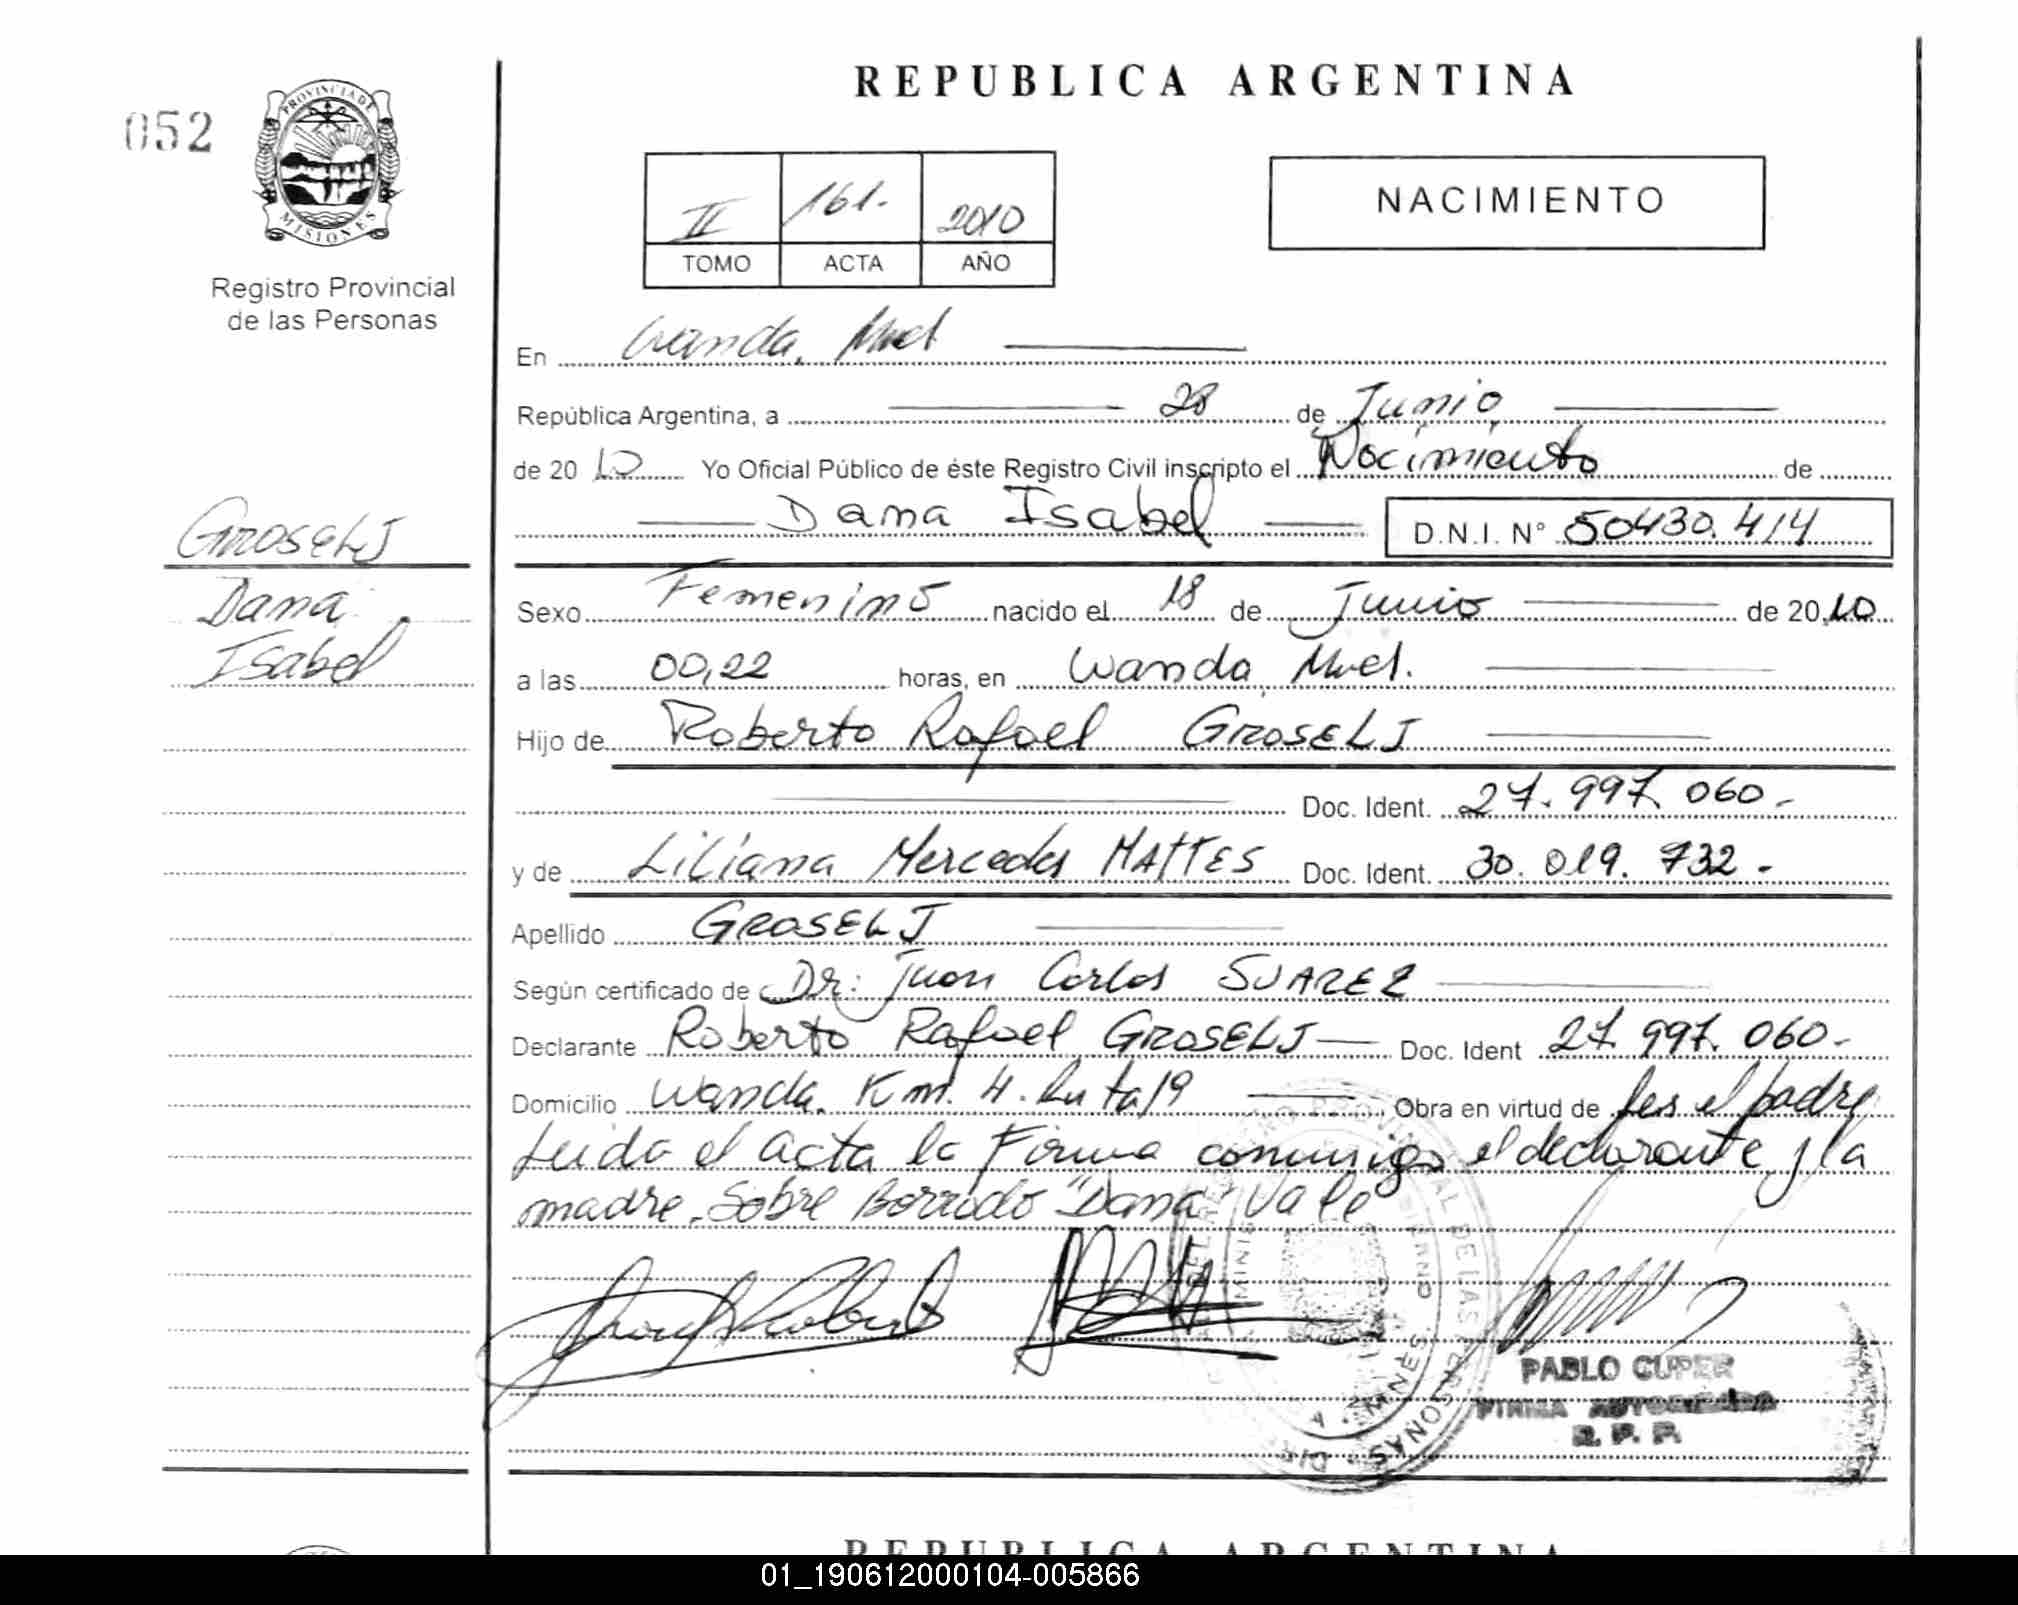 REPUBLICA ARGENTINA
052
PROVINCIA DE
MISIONES
Registro Provincial
de las Personas
II 161. 2010
TOMO ACTA AÑO
NACIMIENTO
En Wanda, Mnes
República Argentina, a 28 de Junio
de 2010 Yo Oficial Público de éste Registro Civil inscripto el Nacimiento de
Dana Isabel D.N.I. Nº 50430.414
GROSELJ
Dana
Isabel
Sexo Femenino nacido el 18 de Junio de 2010
a las 00,22 horas, en Wanda, Mnes.
Hijo de Roberto Rafael GROSELJ
Doc. Ident. 27.997.060.-
y de Liliana Mercedes MATTES Doc. Ident. 30.019.732.-
Apellido GROSELJ
Según certificado de Dr: Juan Carlos SUAREZ
Declarante Roberto Rafael GROSELJ Doc. Ident 27.997.060.-
Domicilio Wanda. Km. 4. Ruta 19 Obra en virtud de ser el padre
Leida el acta la Firma conmigo el declarante y la
madre. Sobre Borrado "Dana" Vale
PABLO CUPER
FIRMA AUTORIZADA
R. P. P.
REPUBLICA ARGENTINA
01_190612000104-005866